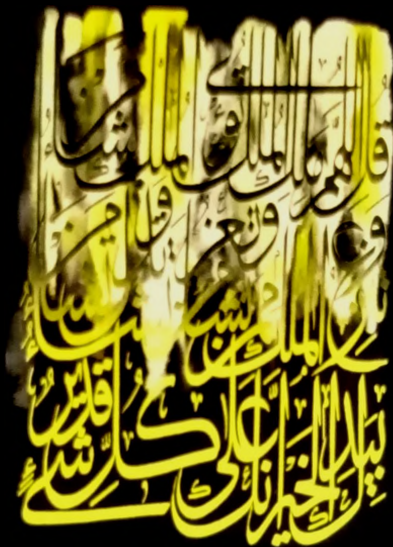 قل اللهم ملك الملك تؤتي الملك من تشاء
وتنزع الملك ممن تشاء وتعز من تشاء وتذل من تشاء
بيدك الخير إنك على كل شيء قدير